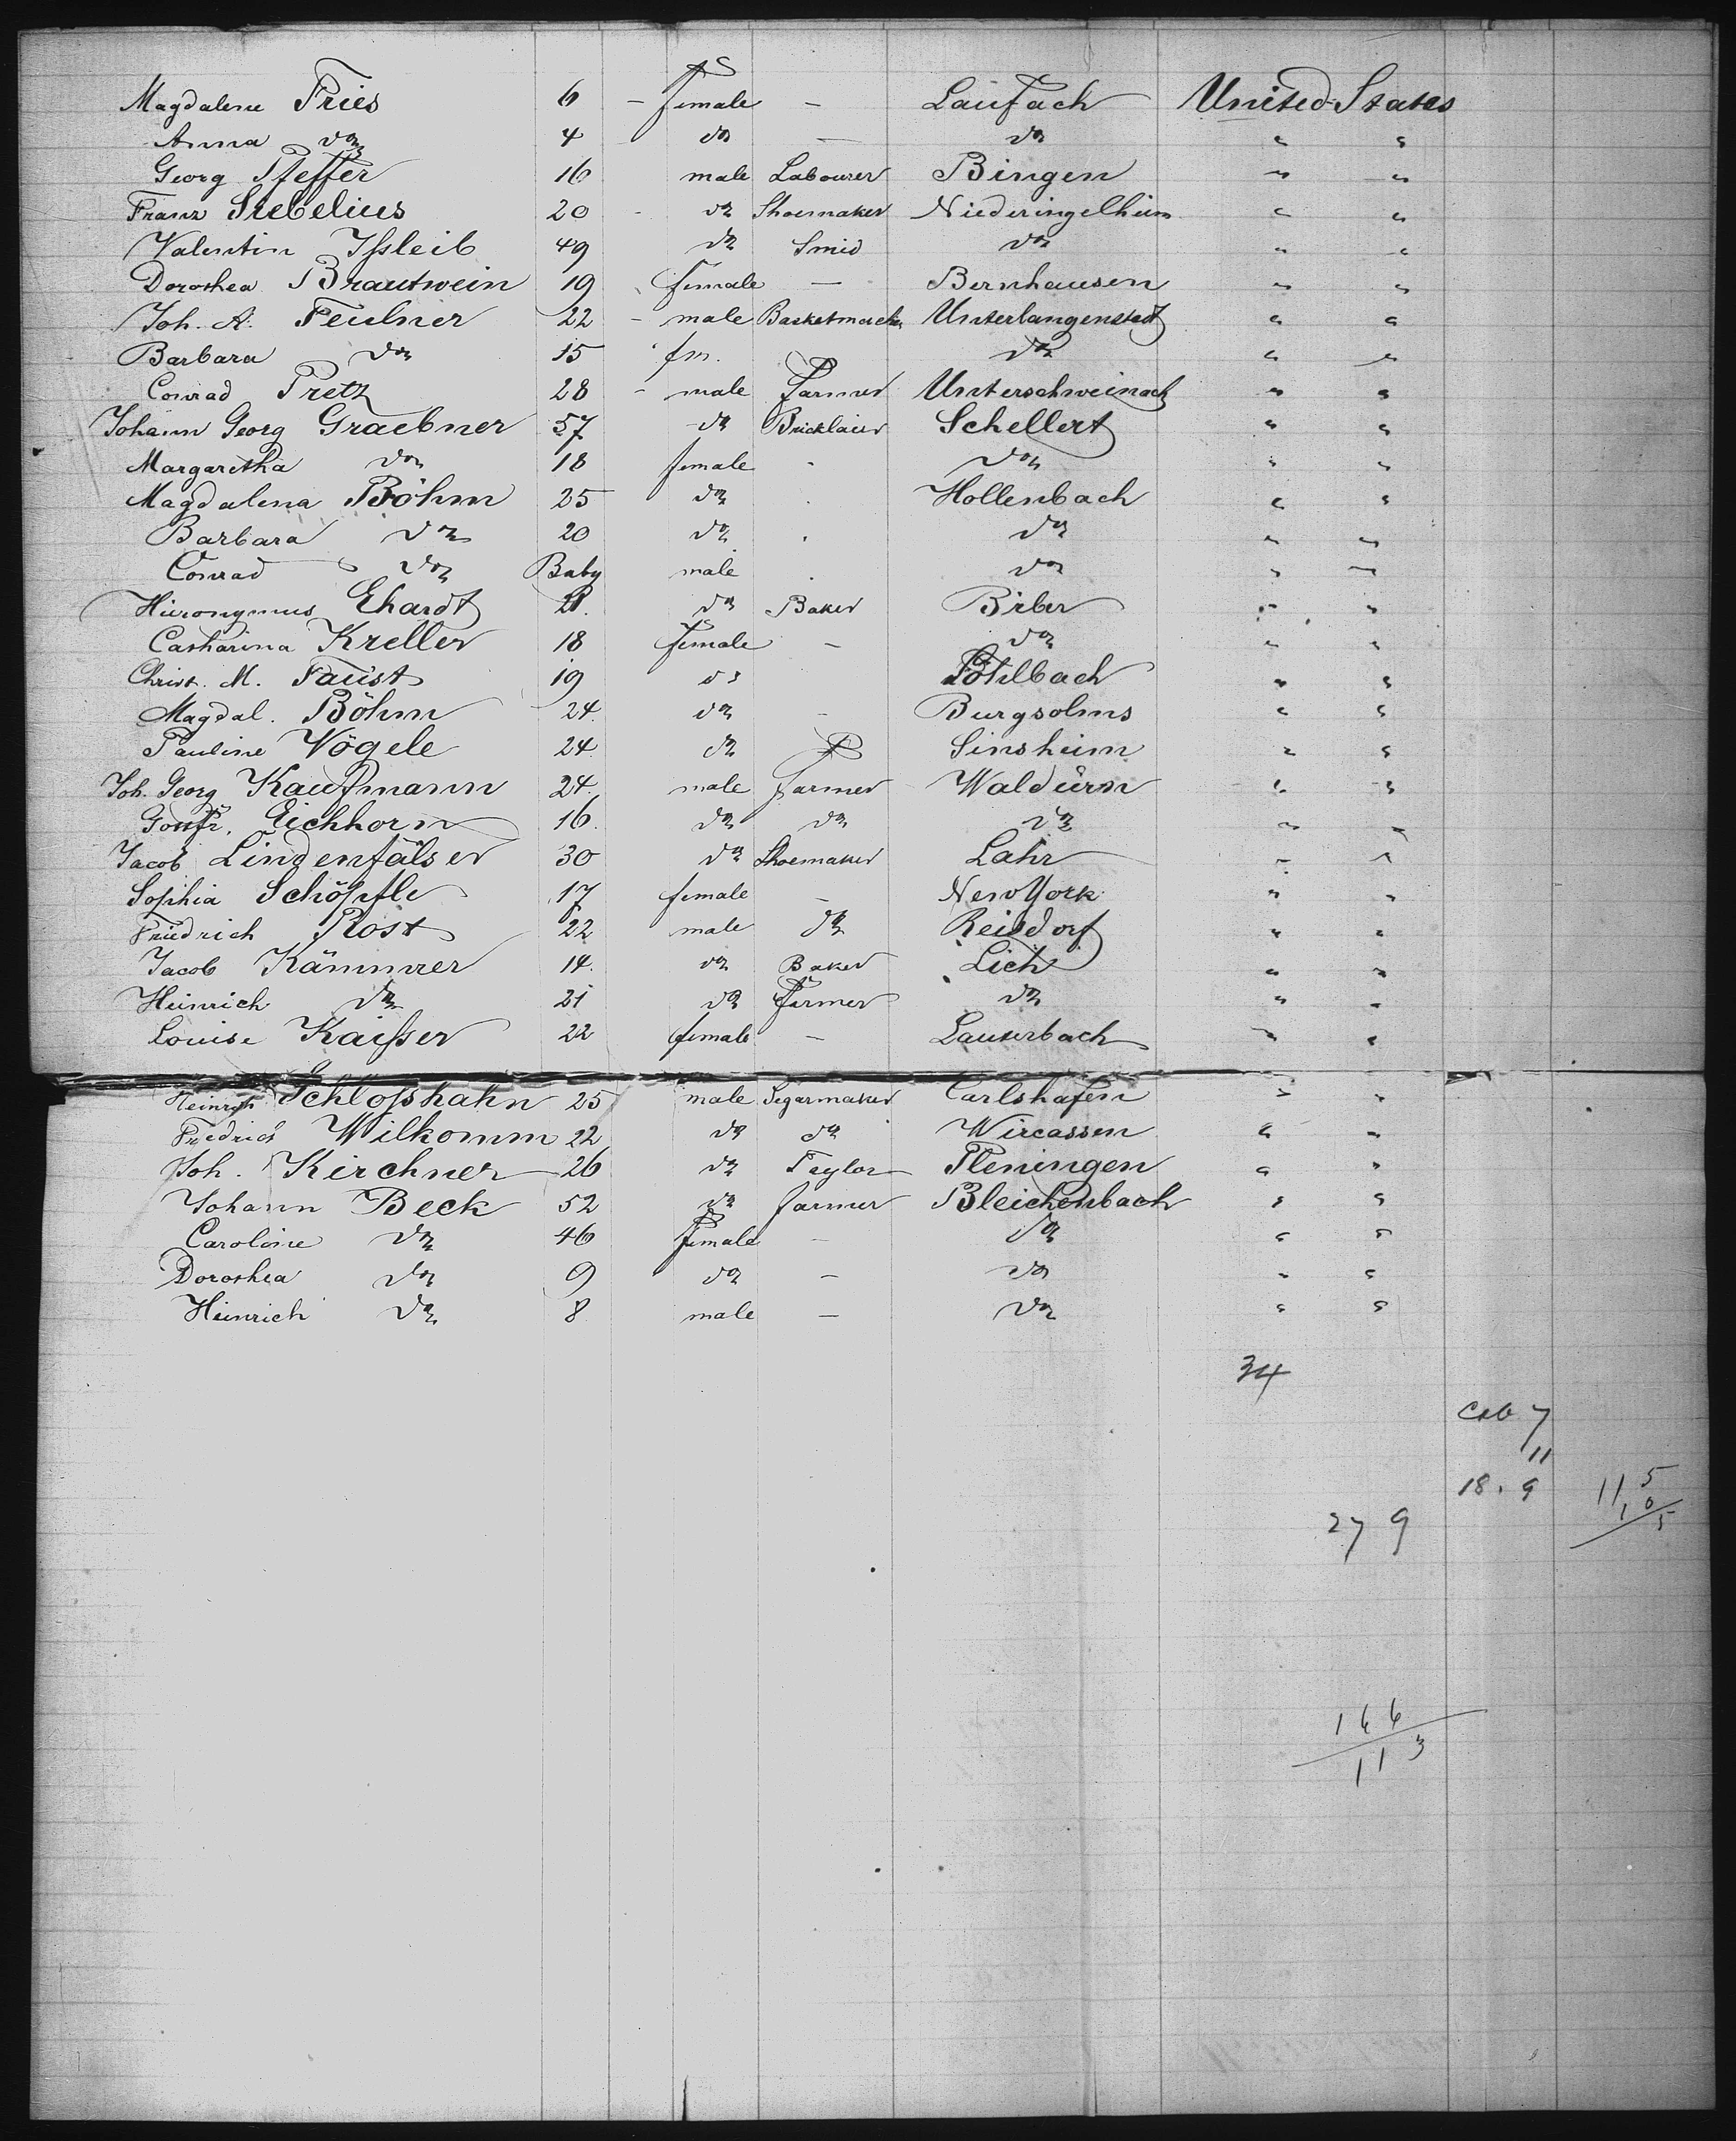 Magdalene Fries 6 - female - Laufach United States
Anna do 4 do - do " "
Georg Pfeffer 16 male Labourer Bingen " "
Franz Siebelius 20 - do Shoemaker Niederingelheim " "
Valentin Ißleib 49 do Smid do " "
Dorothea Brautwein 19 female - Bernhausen " "
Joh. A. Feulner 22 - male Basketmacher Unterlangenstadt " "
Barbara do 15 fm. do " "
Conrad Pretz 28 - male farmer Unterschweinach " "
Johann Georg Graebner 57 do Bricklaier Schellert " "
Margaretha do 18 female - do " "
Magdalena Böhm 25 do - Hollenbach " "
Barbara do 20 do - do " "
Conrad do Baby male - do " "
Hieronymus Ehardt 21. do Baker Birber " "
Catharina Kreller 18 female - do " "
Christ. M. Faust 19 do Pöhlbach " "
Magdal. Böhm 24. do - Burgsolms " "
Pauline Vögele 24. do Sinsheim " "
Joh. Georg Kaufmann 24. male farmer Waldürn " "
Gottfr. Eichhorn 16. do do do " "
Jacob Lindenfälser 30 do Shoemaker Lahr " "
Sophia Schöpfle 17 female - New York " "
Friedrich Rost 22 male do Reisdorf " "
Jacob Kämmrer 14. do Baker Lich " "
Heinrich do 21 do farmer do " "
Louise Kaißer 22 female - Lauterbach " "
Heinrich Schloßhahn 25 male Segarmaker Carlshafen " "
Friedrich Wilkomm 22 do do Wircassen " "
Joh. Kirchner 26 do Taylor Pleningen " "
Johann Beck 52 do farmer Bleichenbach " "
Caroline do 46 female - do " "
Dorothea do 9 do - do " "
Heinrich do 8 male - do " "
34
Cab 7
11
18. 9
115
10
5
279
166
113